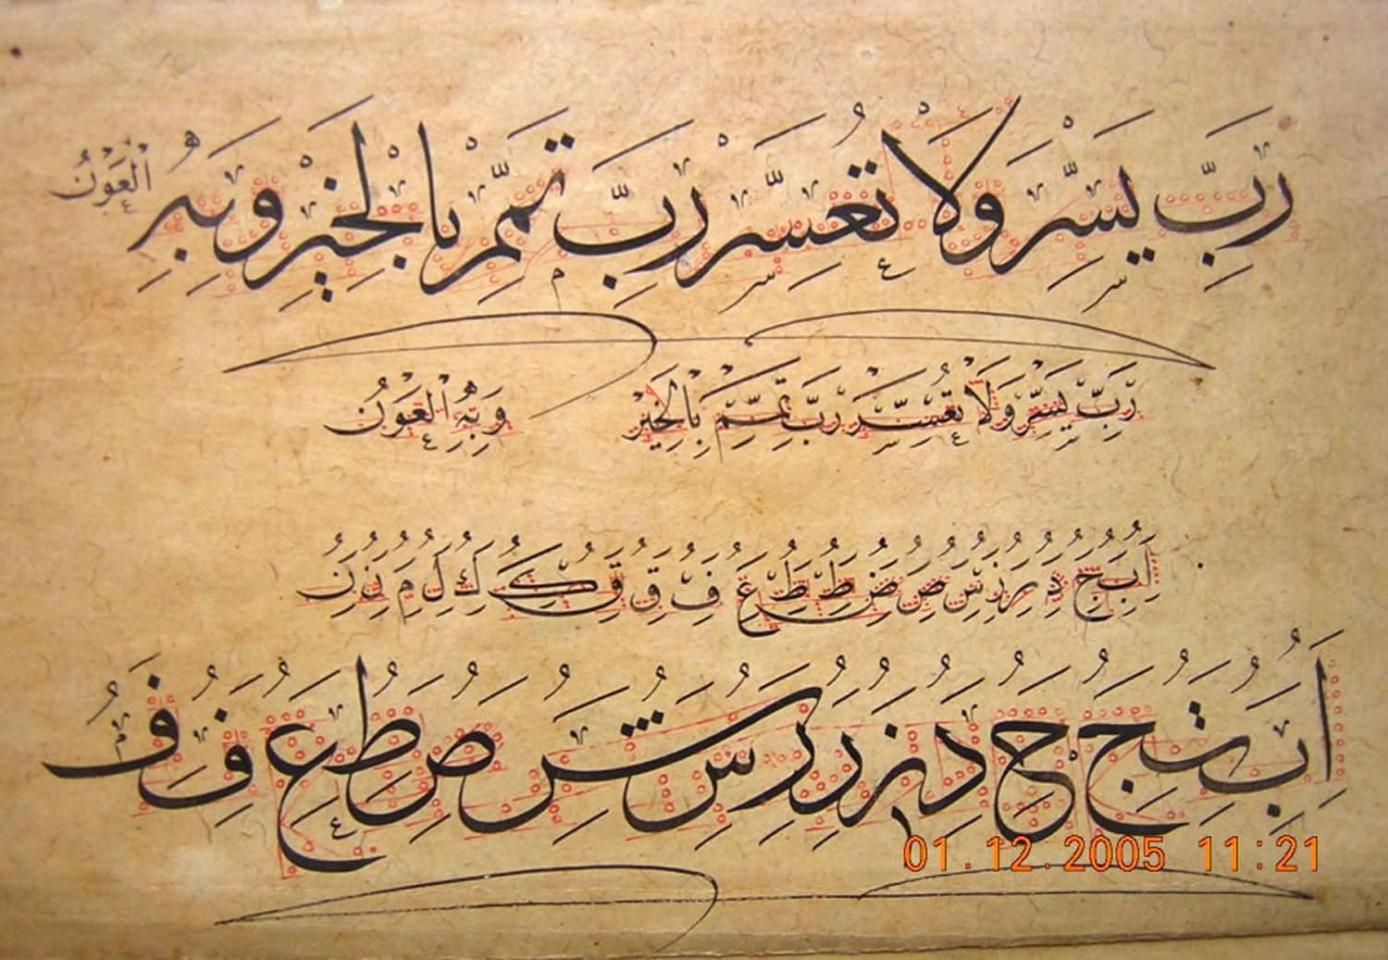 رَبِّ يَسِّرْ وَلَا تُعَسِّرْ رَبِّ تَمِّمْ بِالْخَيْرِ وَبِهِ الْعَوْنُ
رَبِّ يَسِّرْ وَلَا تُعَسِّرْ رَبِّ تَمِّمْ بِالْخَيْرِ وَبِهِ الْعَوْنُ
ا ب ج د ر ر ز س ص ض ط ظ ع ف ق ق ك ك ل م ن ن
ا ب ت ج ح د ز ر ر س ش ص ط ع ف ف
01.12.2005 11:21